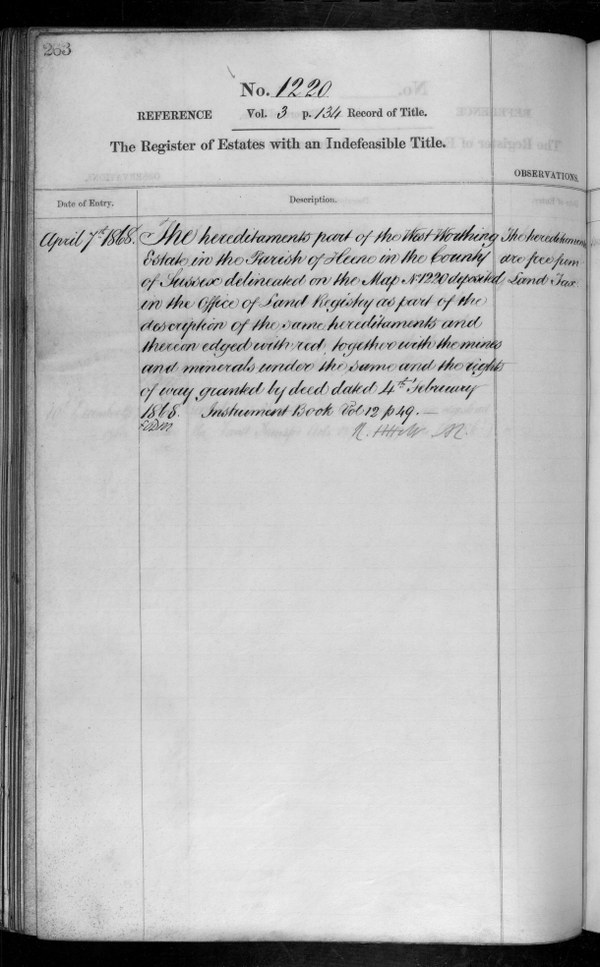 263
No. 1220
REFERENCE Vol. 3 p. 134 Record of Title.
The Register of Estates with an Indefeasible Title.
OBSERVATIONS.
Date of Entry.
Description.
April 7th 1868.
The hereditaments part of the West Worthing
Estate, in the Parish of Heene in the County
of Sussex delineated on the Map No 1220 deposited
in the Office of Land Registry as part of the
description of the same hereditaments and
thereon edged with red, together with the mines
and minerals under the same and the rights
of way granted by deed dated 4th February
1868. Instrument Book Vol 12 p 49. —
The hereditaments
are free from
Land Tax